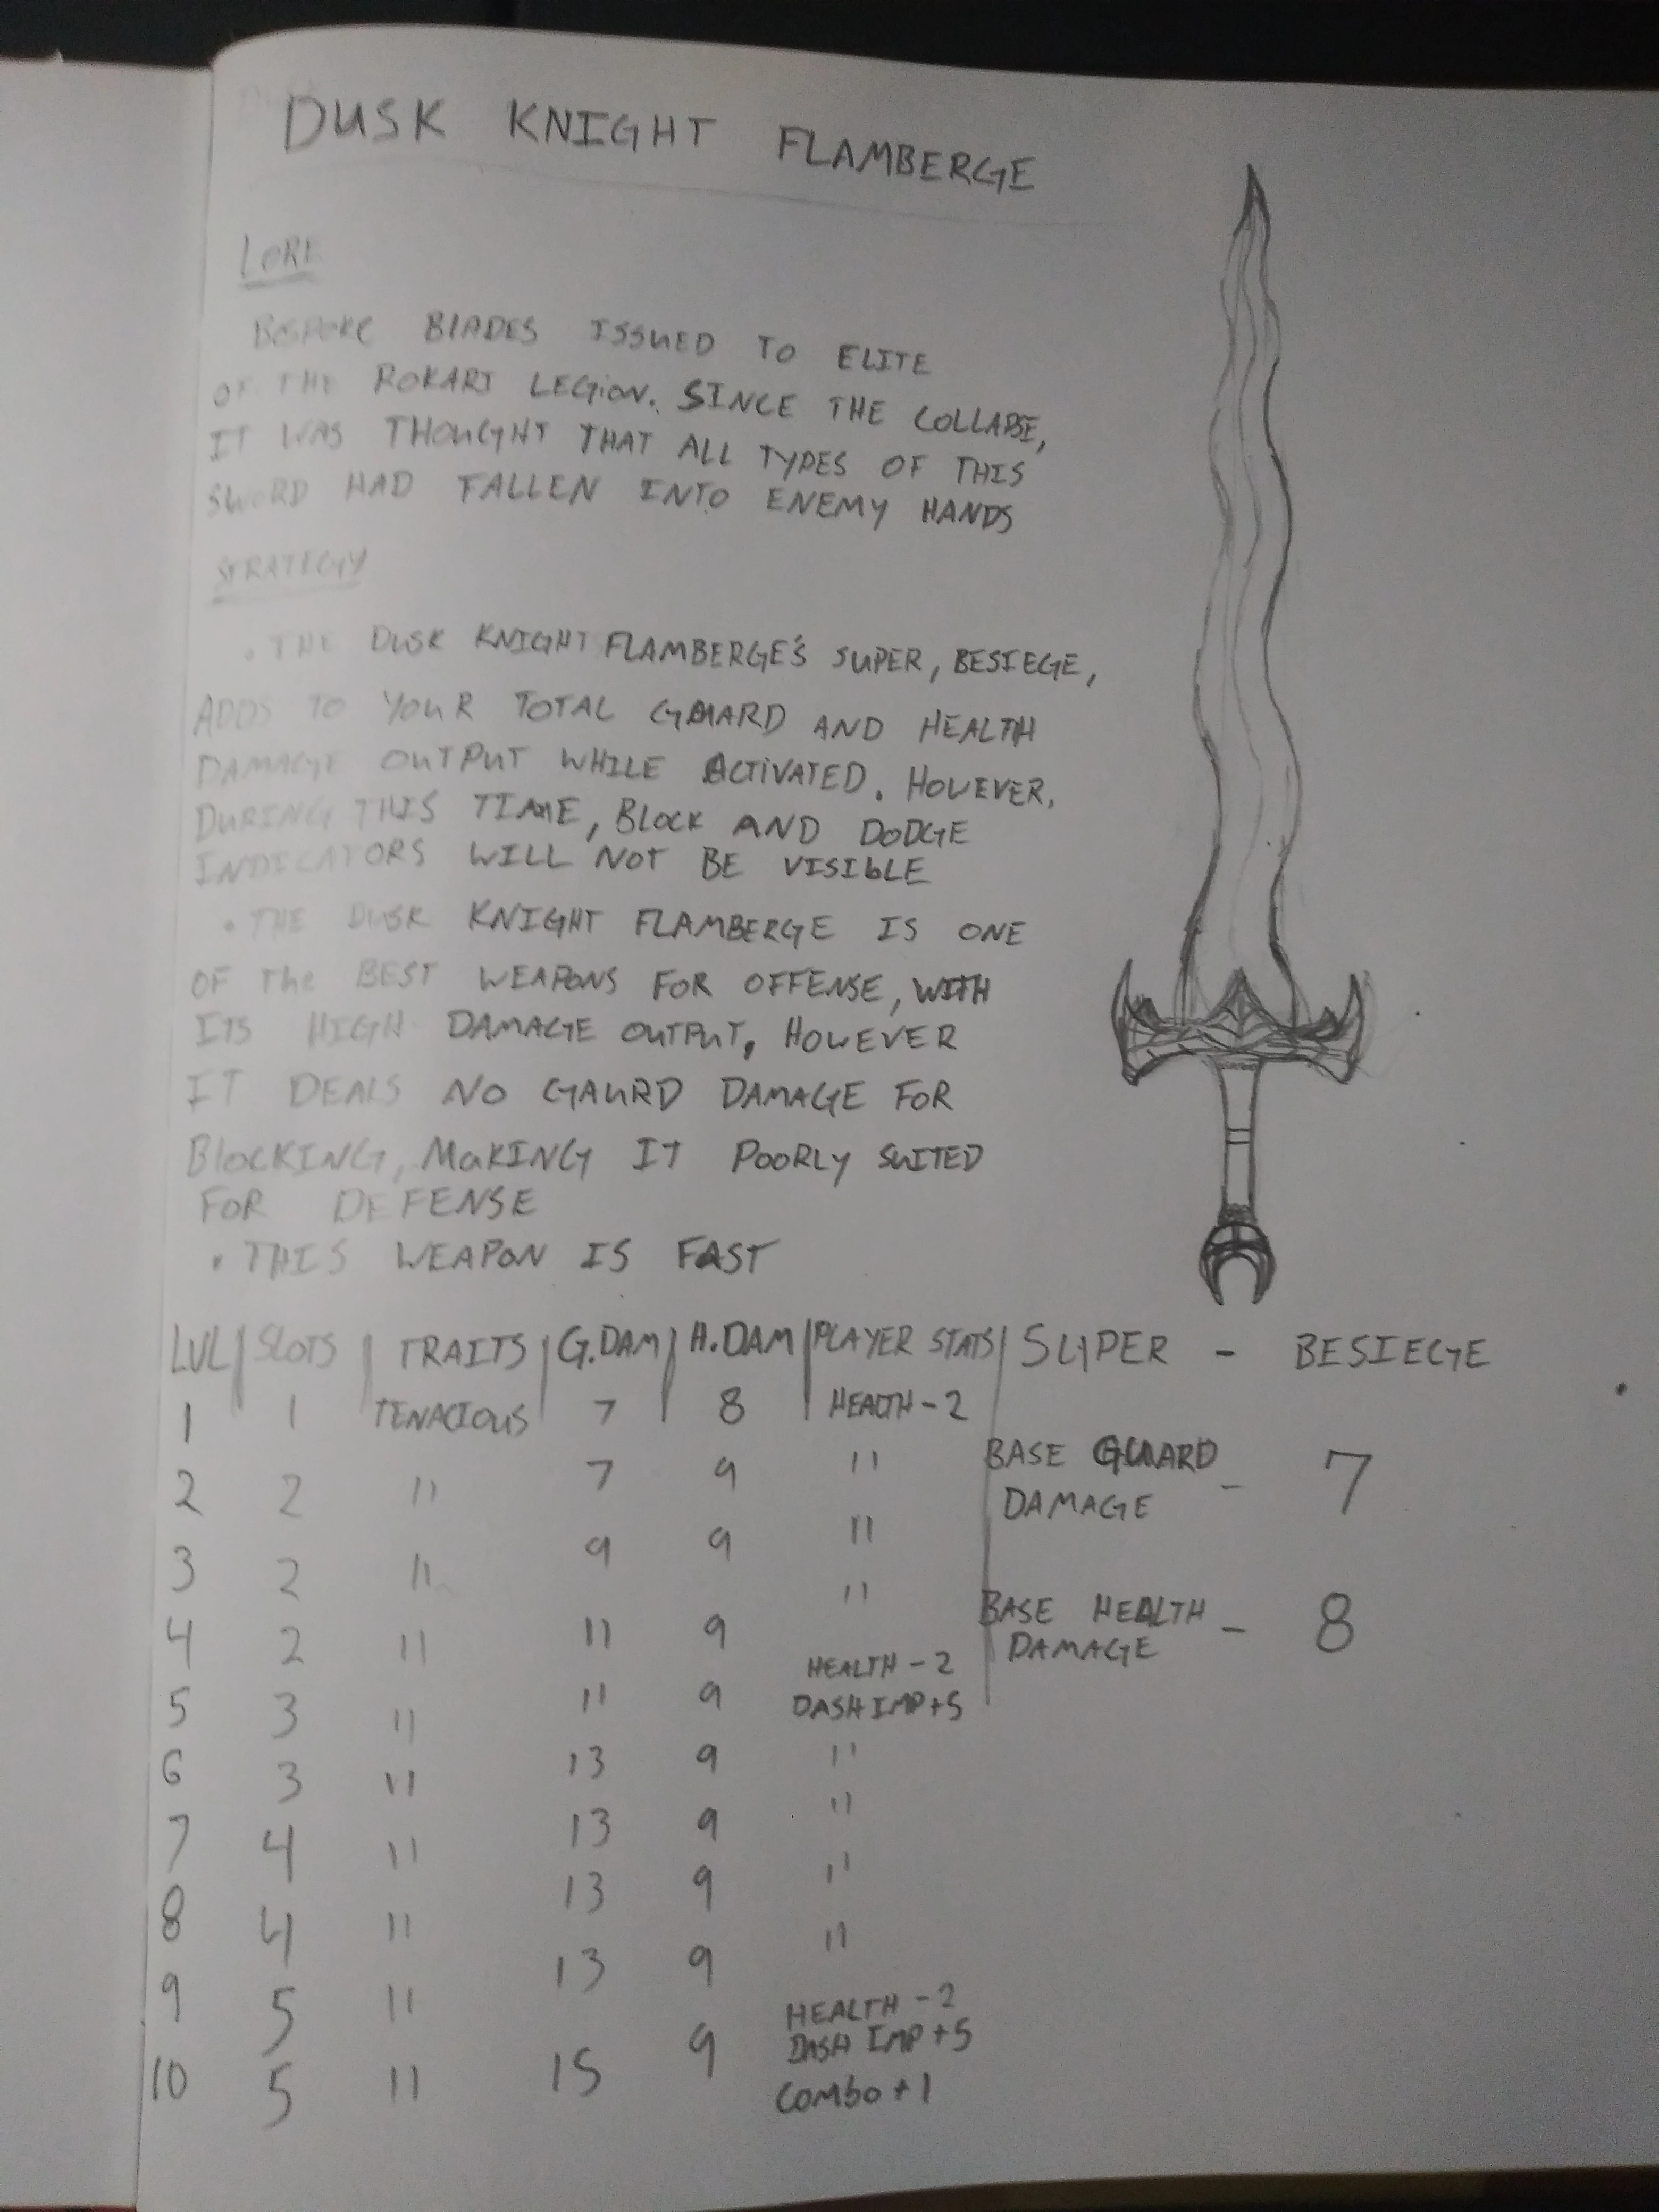 DUSK KNIGHT FLAMBERGE
LORE
BESPOKE BLADES ISSUED TO ELITE
OF THE ROKARI LEGION. SINCE THE COLLAPSE,
IT WAS THOUGHT THAT ALL TYPES OF THIS
SWORD HAD FALLEN INTO ENEMY HANDS
STRATEGY
• THE DUSK KNIGHT FLAMBERGE'S SUPER, BESIEGE,
ADDS TO YOUR TOTAL GUARD AND HEALTH
DAMAGE OUTPUT WHILE ACTIVATED. HOWEVER,
DURING THIS TIME, BLOCK AND DODGE
INDICATORS WILL NOT BE VISIBLE
• THE DUSK KNIGHT FLAMBERGE IS ONE
OF THE BEST WEAPONS FOR OFFENSE, WITH
ITS HIGH DAMAGE OUTPUT, HOWEVER
IT DEALS NO GAURD DAMAGE FOR
BLOCKING, MAKING IT POORLY SUITED
FOR DEFENSE
• THIS WEAPON IS FAST
LVL | SLOTS | TRAITS | G.DAM | H.DAM | PLAYER STATS | SUPER - BESIEGE
1 1 TENACIOUS 7 8 HEALTH - 2
2 2 " 7 9 "
3 2 " 9 9 "
4 2 " 11 9 "
5 3 " 11 9 HEALTH - 2
DASH IMP + 5
6 3 " 13 9 "
7 4 " 13 9 "
8 4 " 13 9 "
9 5 " 13 9 "
10 5 " 15 9 HEALTH - 2
DASH IMP + 5
COMBO + 1
BASE GUARD
DAMAGE - 7
BASE HEALTH
DAMAGE - 8